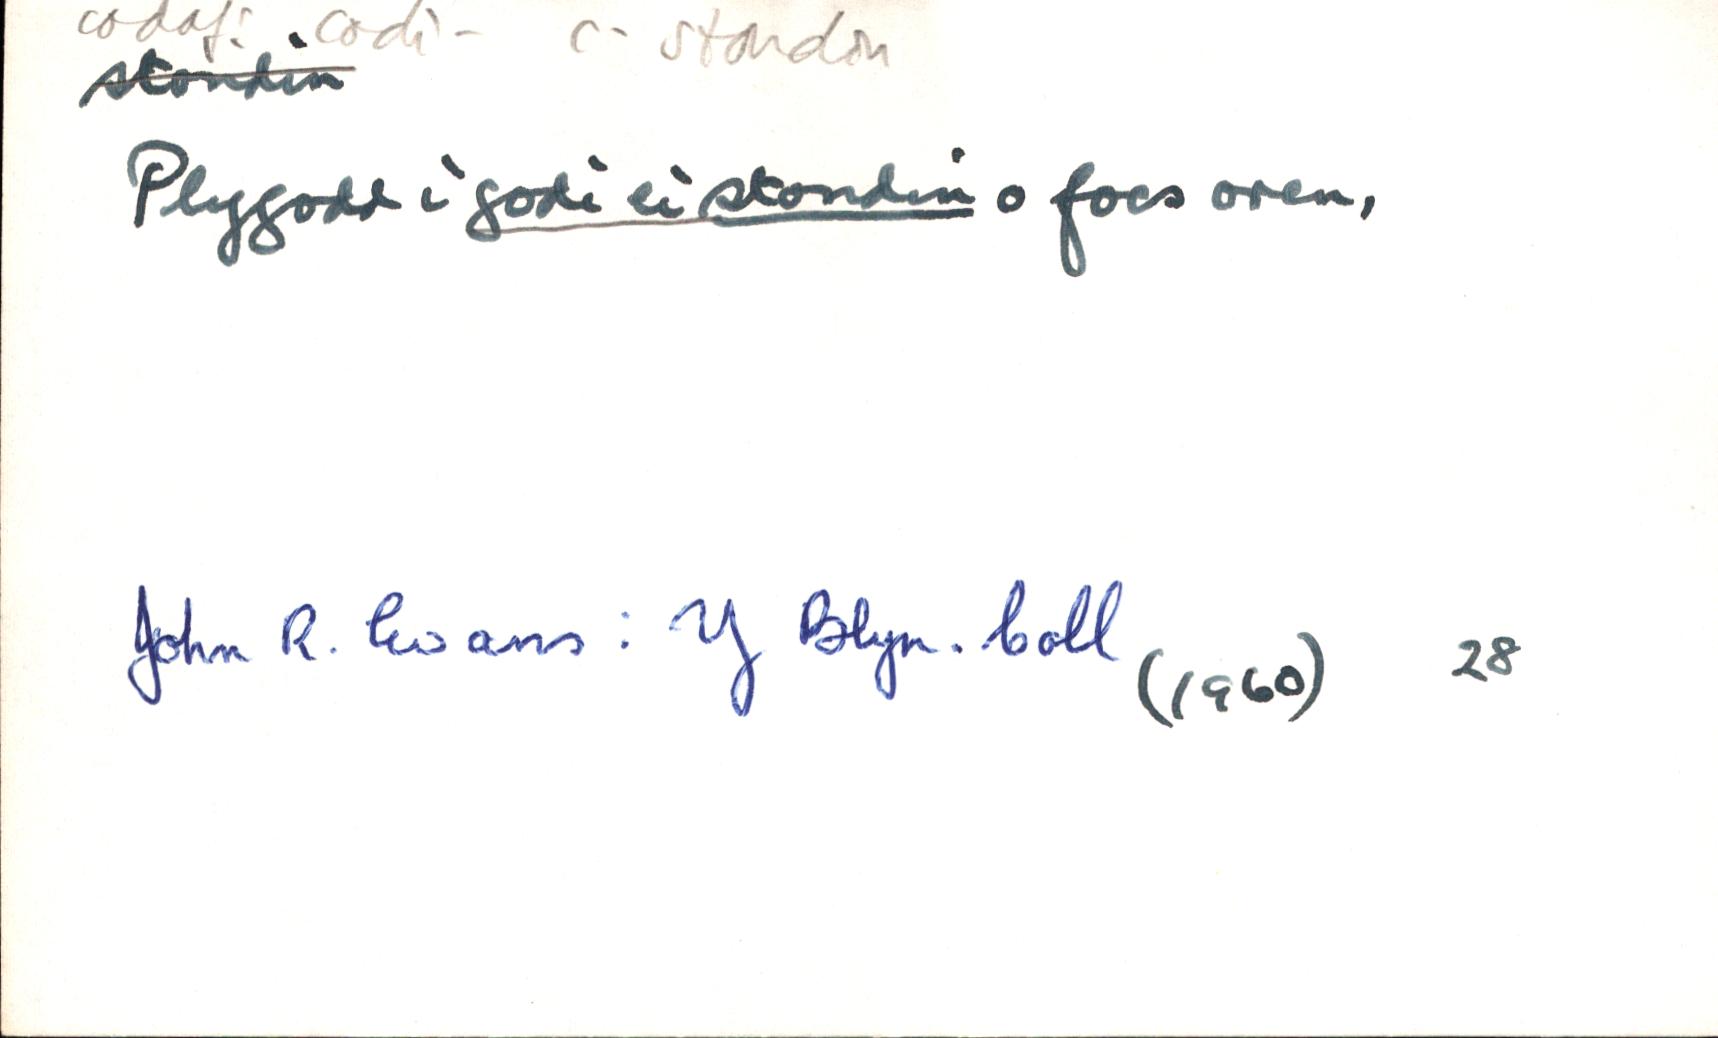 codaf: codi - c- stondin
stondin
Plygodd i godi ei stondin o focs oren,
John R. Evans: Y Blyn. Coll (1960) 28